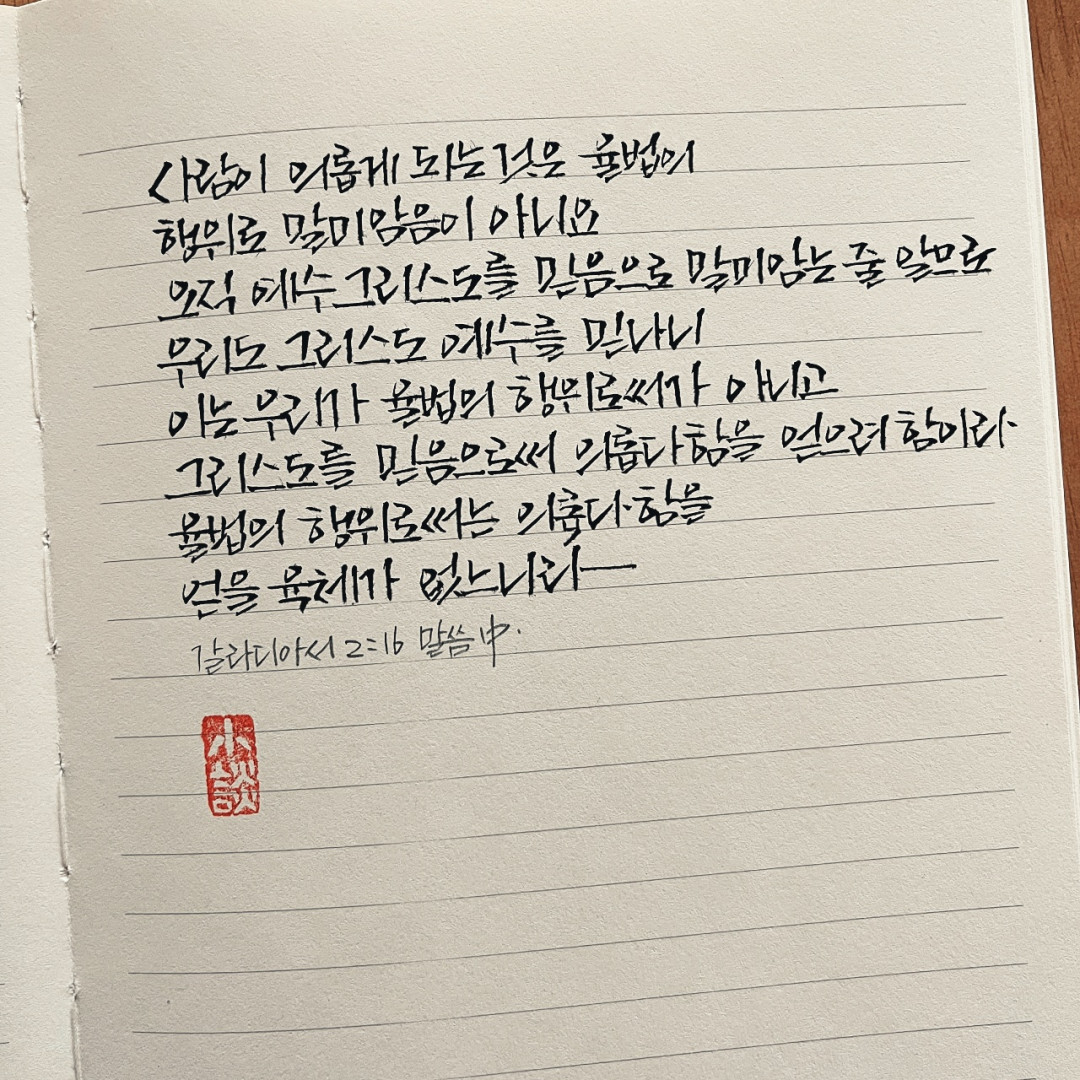 사람이 의롭게 되는것은 율법의
행위로 말미암음이 아니요
오직 예수그리스도를 믿음으로 말미암는 줄 알므로
우리도 그리스도 예수를 믿나니
이는 우리가 율법의 행위로써가 아니고
그리스도를 믿음으로써 의롭다함을 얻으려함이라.
율법의 행위로써는 의롭다함을
얻을 육체가 없느니라—
갈라디아서 2:16 말씀 中.
小
談